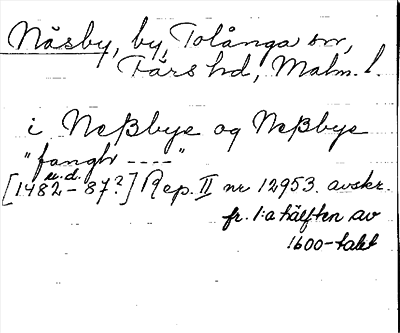 Näsby, by, Tolånga sn,
Färs hd, Malm. l.
i Neßbye og Neßbye
"fangh ----"
u.d.
[1482-87?] Rep. II nr 12953. avskr.
fr. 1:a hälften av
1600-talet